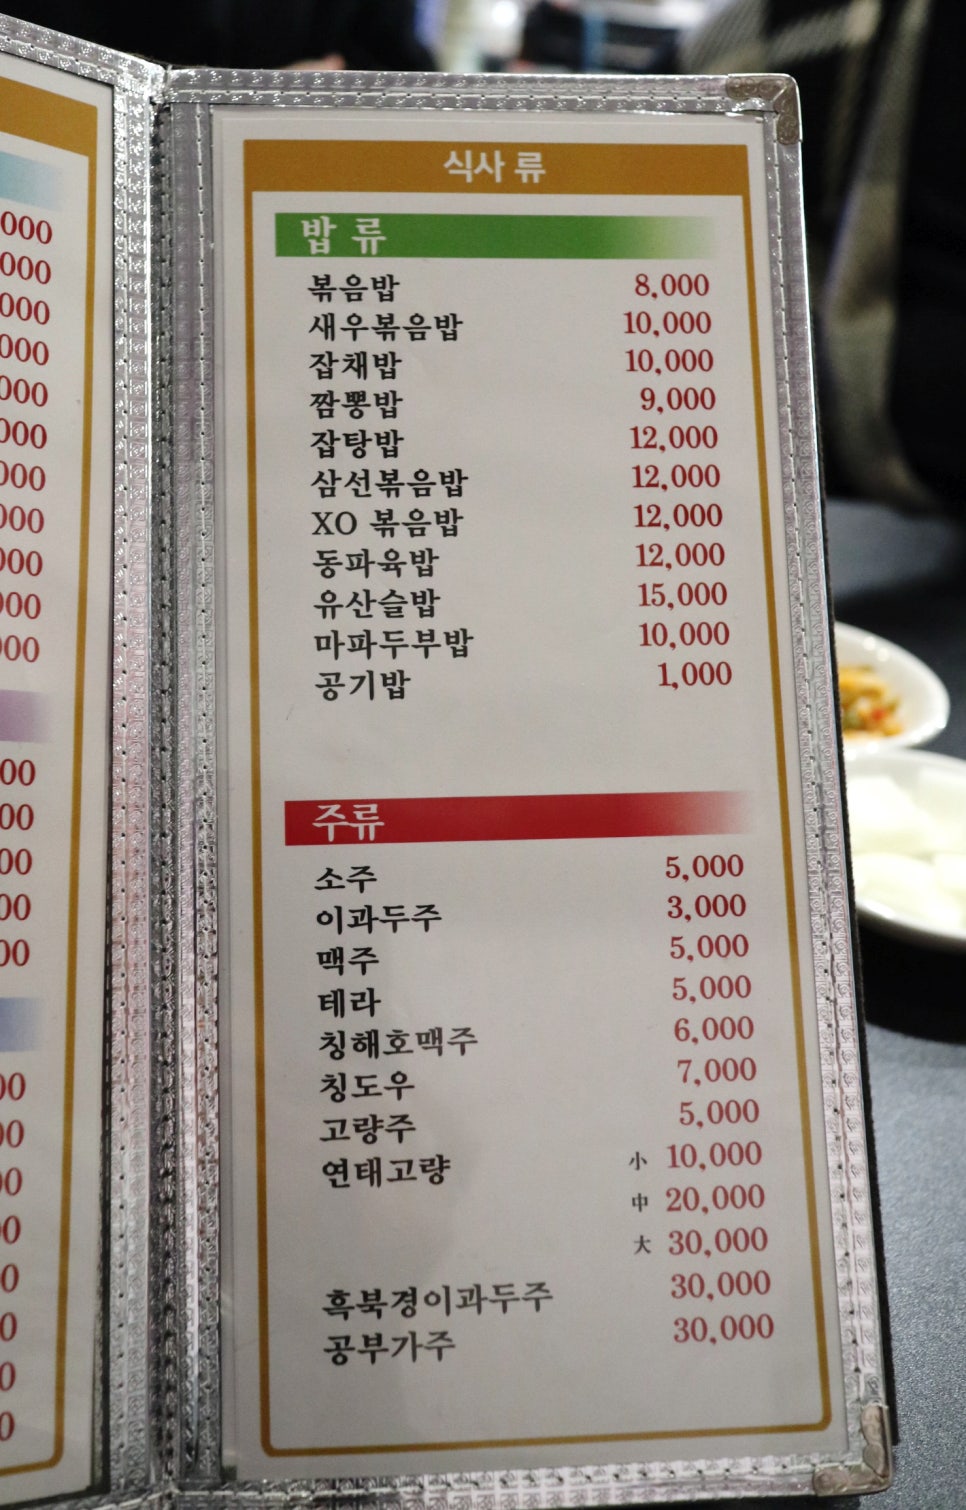 식사 류
밥 류
볶음밥 8,000
새우볶음밥 10,000
잡채밥 10,000
짬뽕밥 9,000
잡탕밥 12,000
삼선볶음밥 12,000
XO 볶음밥 12,000
동파육밥 12,000
유산슬밥 15,000
마파두부밥 10,000
공기밥 1,000
주류
소주 5,000
이과두주 3,000
맥주 5,000
테라 5,000
칭해호맥주 6,000
칭도우 7,000
고량주 5,000
연태고량 小 10,000
中 20,000
大 30,000
흑북경이과두주 30,000
공부가주 30,000